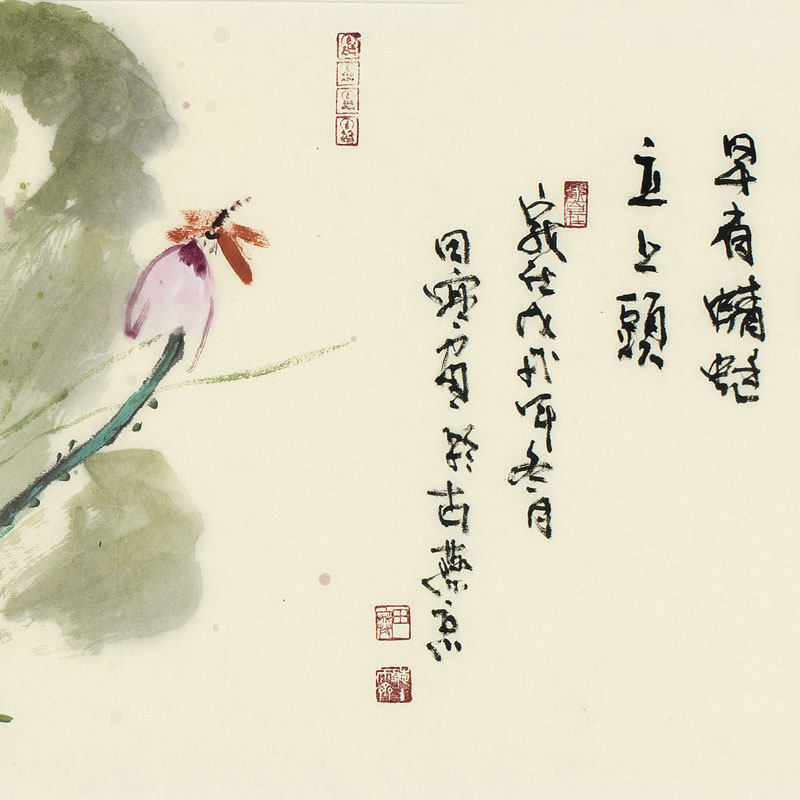 早有蜻蜓
立上頭
歲在戊戌年冬月
田寒寫於古燕京